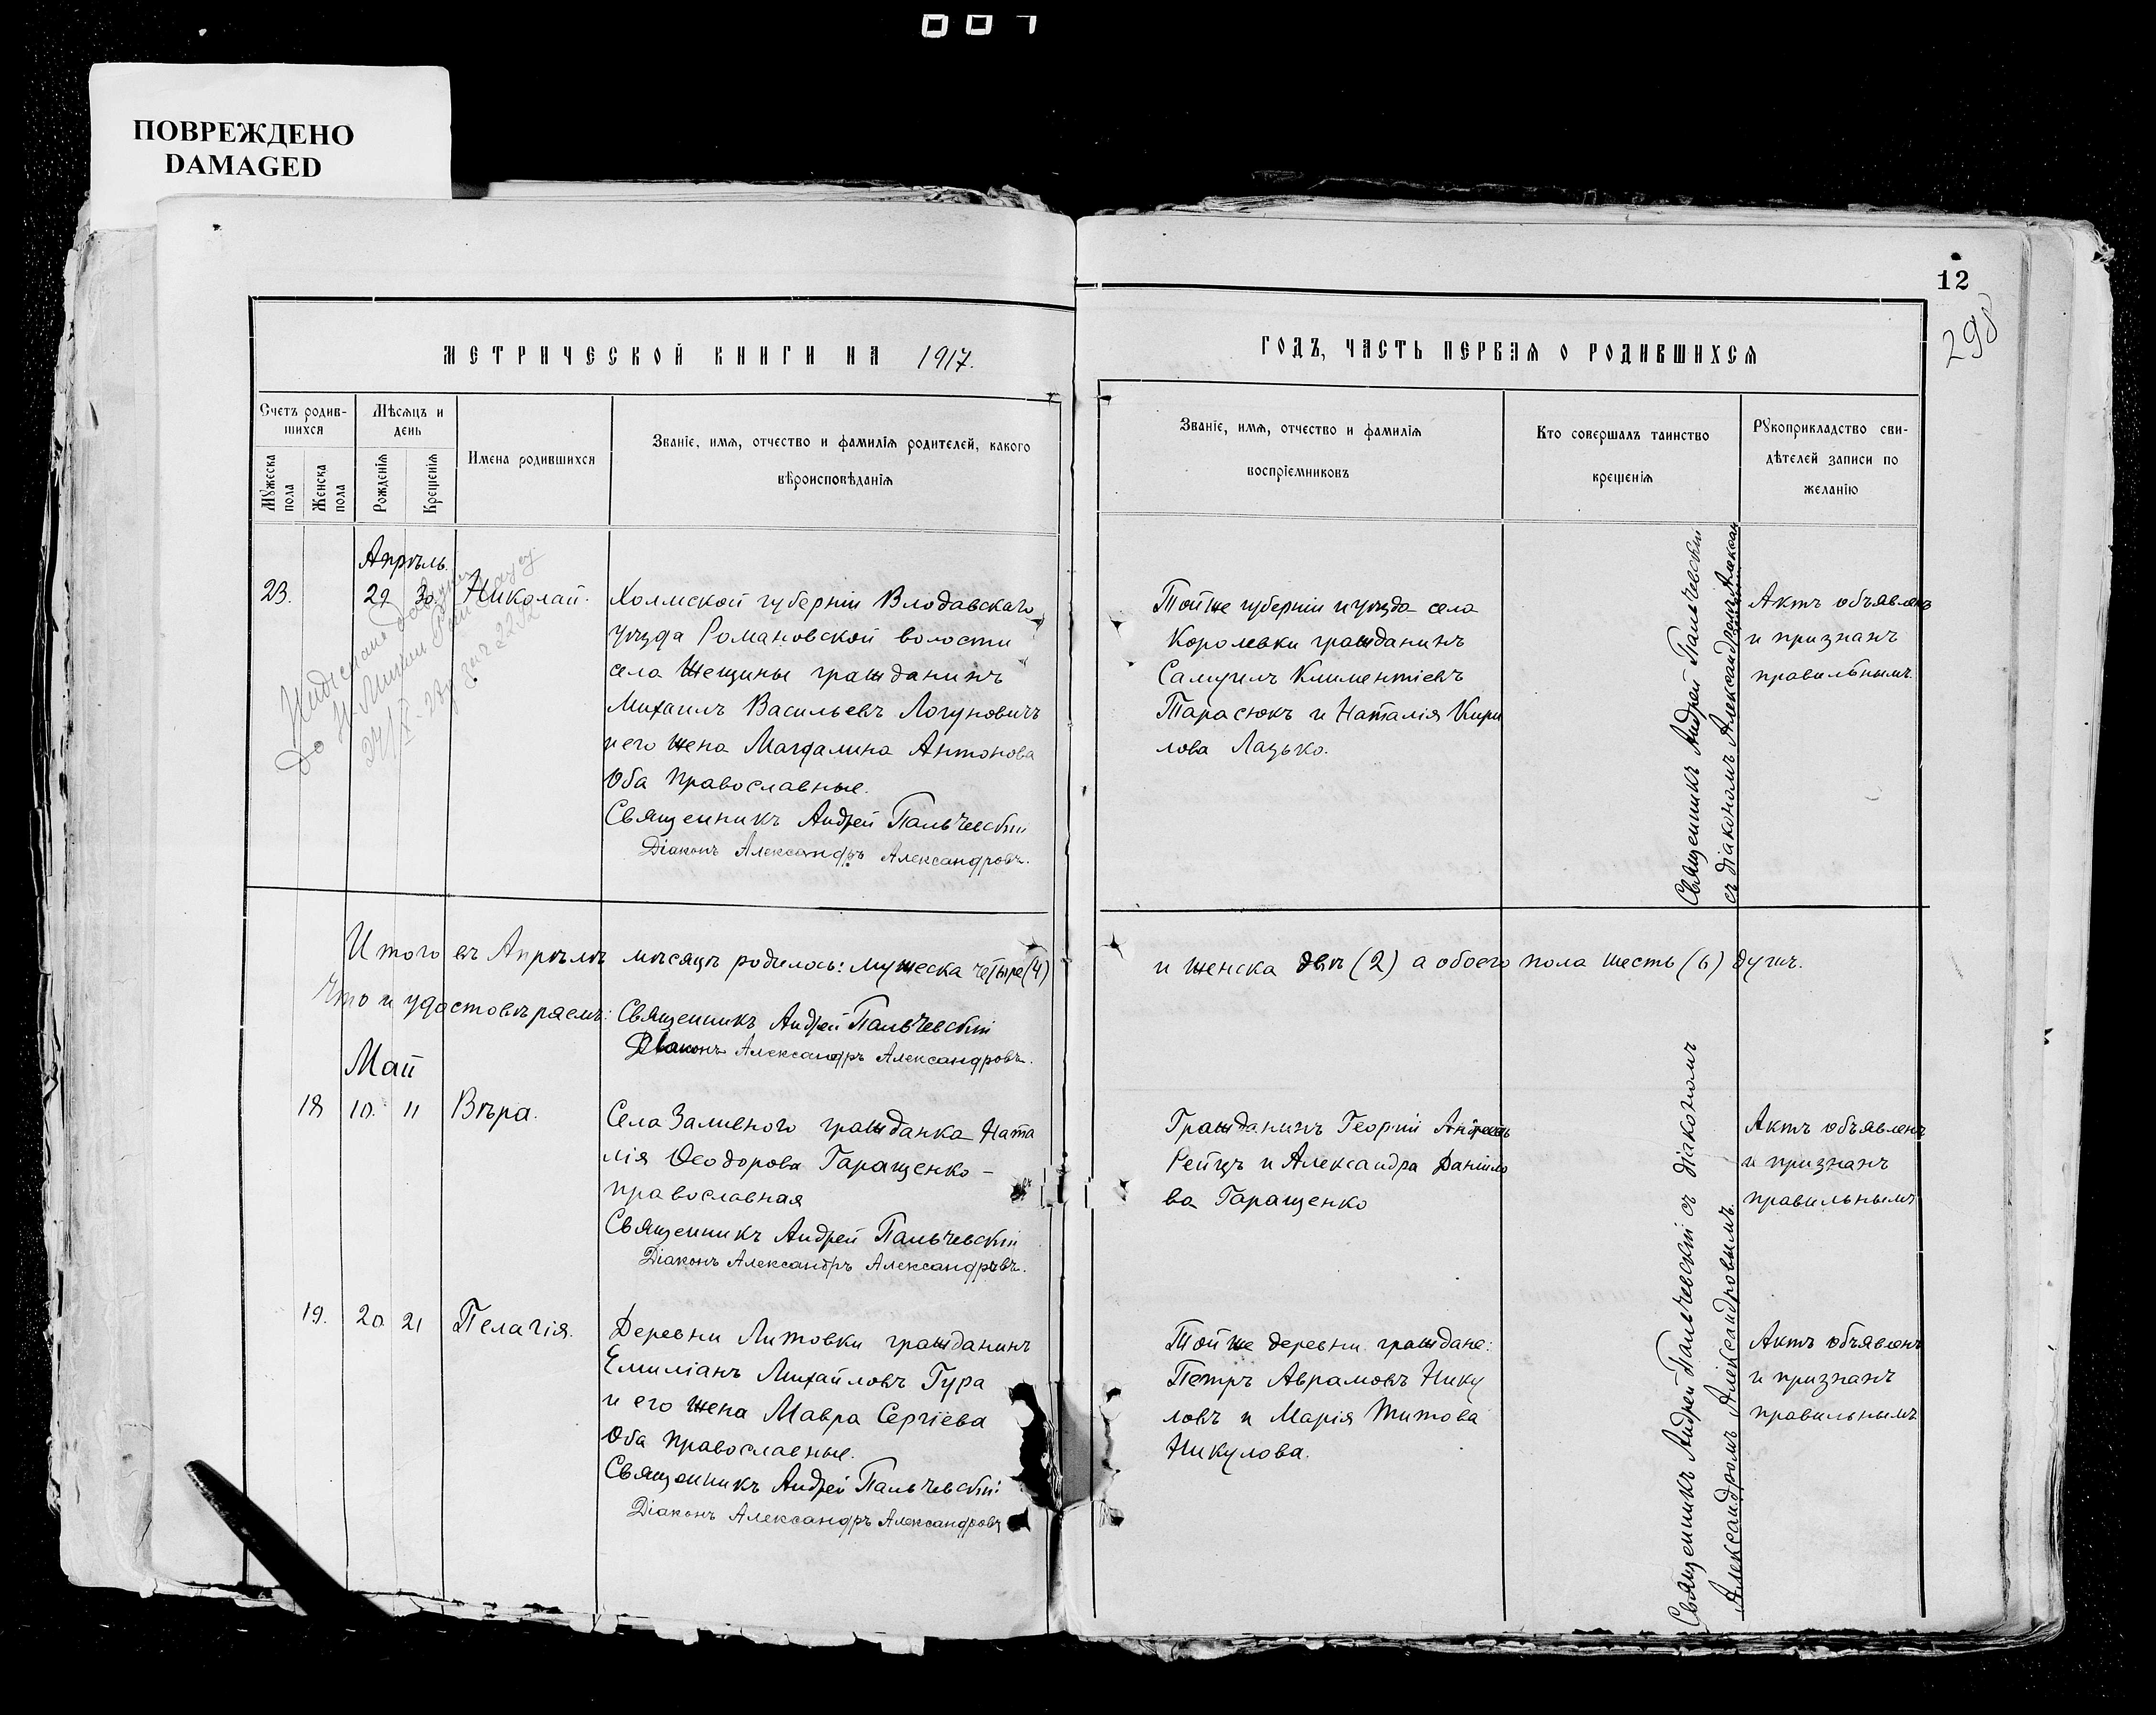 007
ПОВРЕЖДЕНО
DAMAGED
12
298
МЕТРИЧЕСКОЙ КНИГИ НА 1917.
Счетъ родив-
шихся
Мѣсяцъ и
день
Мужеска
пола
Женска
пола
Рожденія
Крещенія
Имена родившихся
Званіе, имя, отчество и фамилія родителей, какого
вѣроисповѣданія
Апрѣль.
23.
29
30.
Николай.
Холмской губерніи Влодавскаго
уѣзда Романовской волости
села Жещины гражданинъ
Михаилъ Васильевъ Логуновичъ
и его жена Магдалина Антонова
Оба православные.
Священникъ Андрей Пальчевскій
Діаконъ Александръ Александровъ.
Итого въ Апрѣлѣ мѣсяцѣ родилось: мужеска четыре (4)
Что и удостовѣряемъ: Священникъ Андрей Пальчевскій
Діаконъ Александръ Александровъ.
Май
18
10.
11
Вѣра.
Села Заливного гражданка Ната
лія Ѳеодорова Гаращенко –
православная
Священникъ Андрей Пальчевскій
Діаконъ Александръ Александровъ.
19.
20.
21
Пелагія.
Деревни Литовки гражданинъ
Емиліанъ Михайловъ Гура
и его жена Мавра Сергіева
Оба православные.
Священникъ Андрей Пальчевскій
Діаконъ Александръ Александровъ
ГОДЪ, ЧАСТЬ ПЕРВАЯ О РОДИВШИХСЯ
Званіе, имя, отчество и фамилія
воспріемниковъ
Кто совершалъ таинство
крещенія
Рукоприкладство сви-
дѣтелей записи по
желанію
Той же губерніи и уѣзда села
Королевки гражданинъ
Самуилъ Климентіевъ
Тарасюкъ и Наталія Кири
лова Лацько.
Священникъ Андрей Пальчевскій
съ діакономъ Александромъ
Актъ объявленъ
и признанъ
правильнымъ.
и женска двѣ (2) а обоего пола шесть (6) душъ.
Гражданинъ Георгій Андреевъ
Рейцъ и Александра Данило
ва Гаращенко
Священникъ Андрей Пальчевскій съ діакономъ
Александромъ Александровымъ.
Актъ объявленъ
и признанъ
правильнымъ
Той же деревни граждане:
Петръ Аврамовъ Нику
ловъ и Марія Титова
Никулова.
Актъ объявленъ
и признанъ
правильнымъ